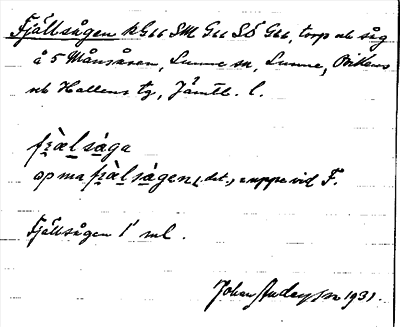 Fjällsågen kG66 SM G66 SÖ G66, torp ub såg
å 5 Månsåsen, Sunne sn, Sunne, Oviken
ub Hallens tg, Jämtl. l.
fjälsåga
op ma fjälsågen, det., uppe vid F.
Fjällsågen 1' ml.
Johan Andersson 1931.